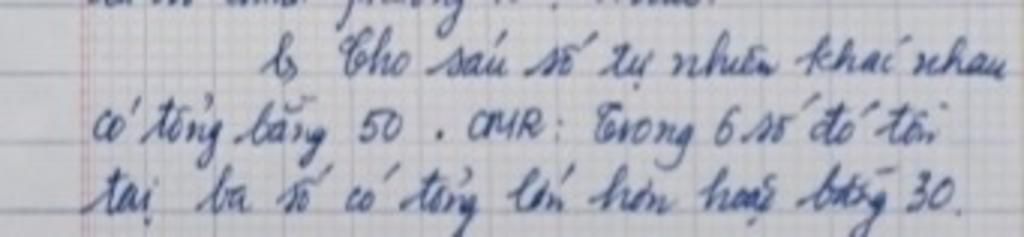 b, Cho sáu số tự nhiên khác nhau
có tổng bằng 50 . CMR: Trong 6 số đó tồn
tại ba số có tổng lớn hơn hoặc bằng 30.